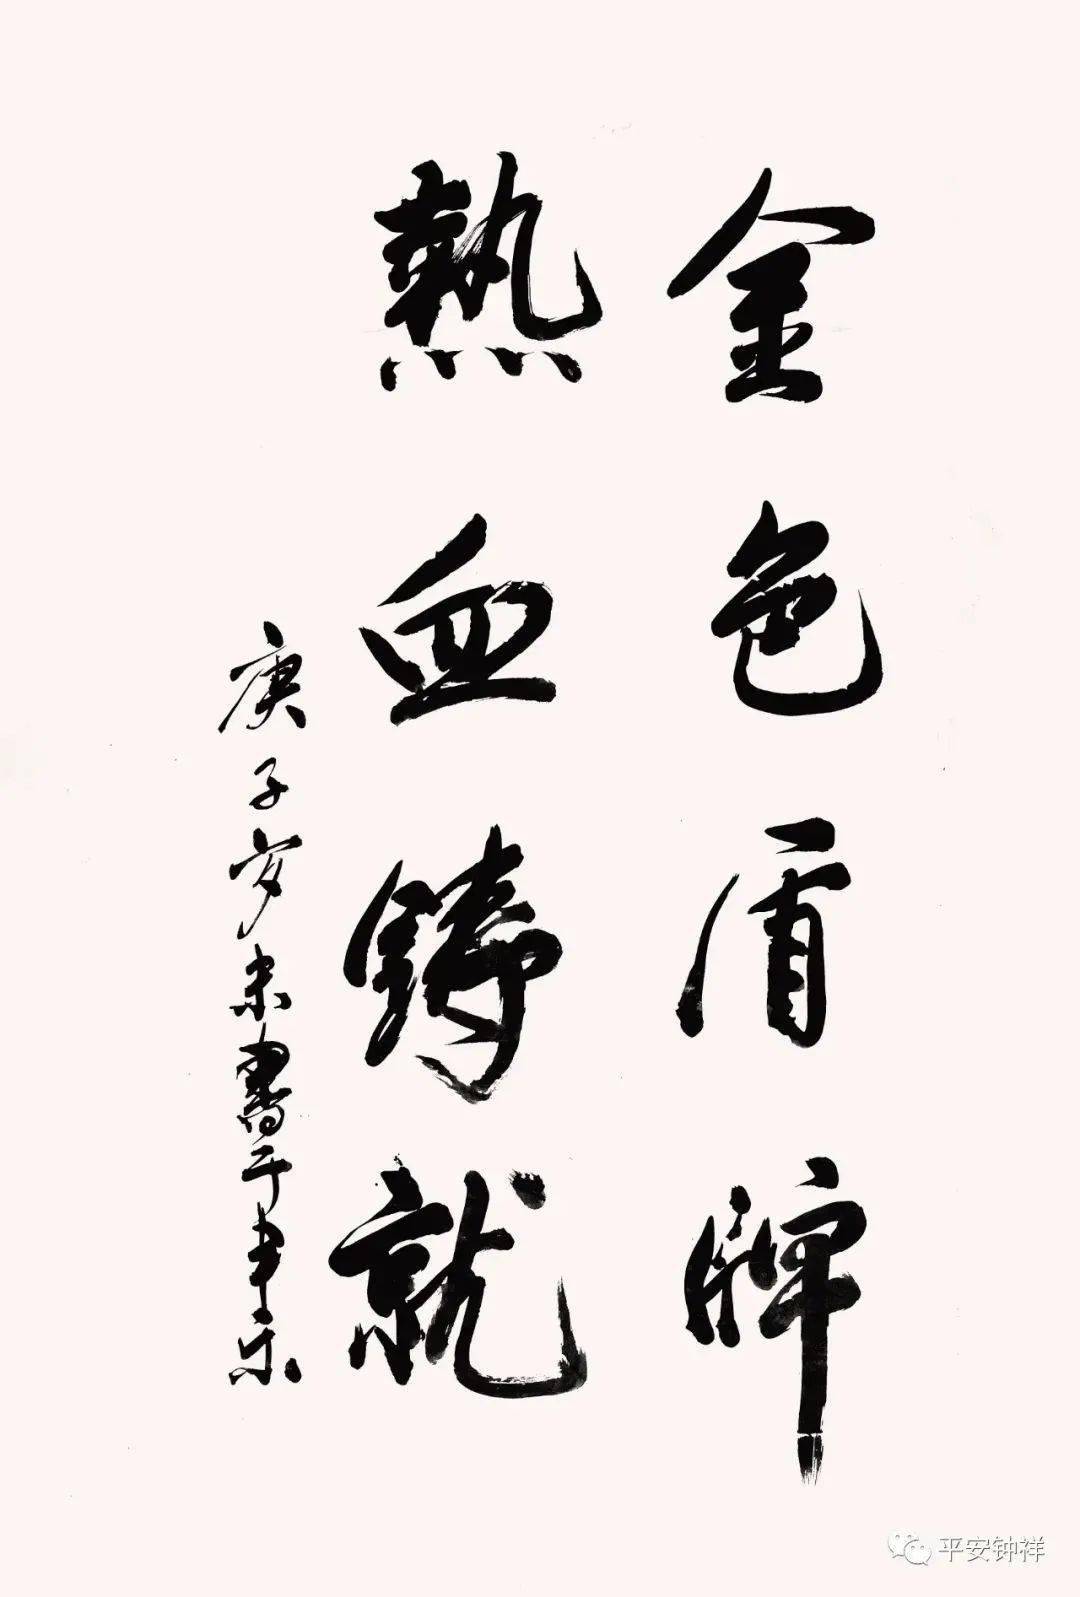 金色盾牌
熱血鑄就
庚子岁末書于
平安钟祥